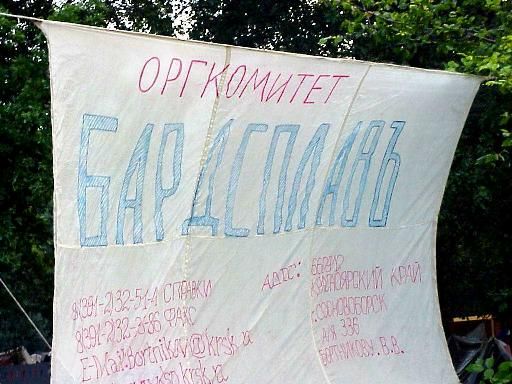 ОРГКОМИТЕТ
БАРДСПЛАВЪ
8(391-2)32-51-1 СПРАВКИ
8(391-2)32-21-86 ФАКС
E-Mail:Bortnikov@krsk.ru
АДРЕС:
КРАСНОЯРСКИЙ КРАЙ
г.СОСНОВОБОРСК
А/Я 336
БОРТНИКОВУ.В.В.